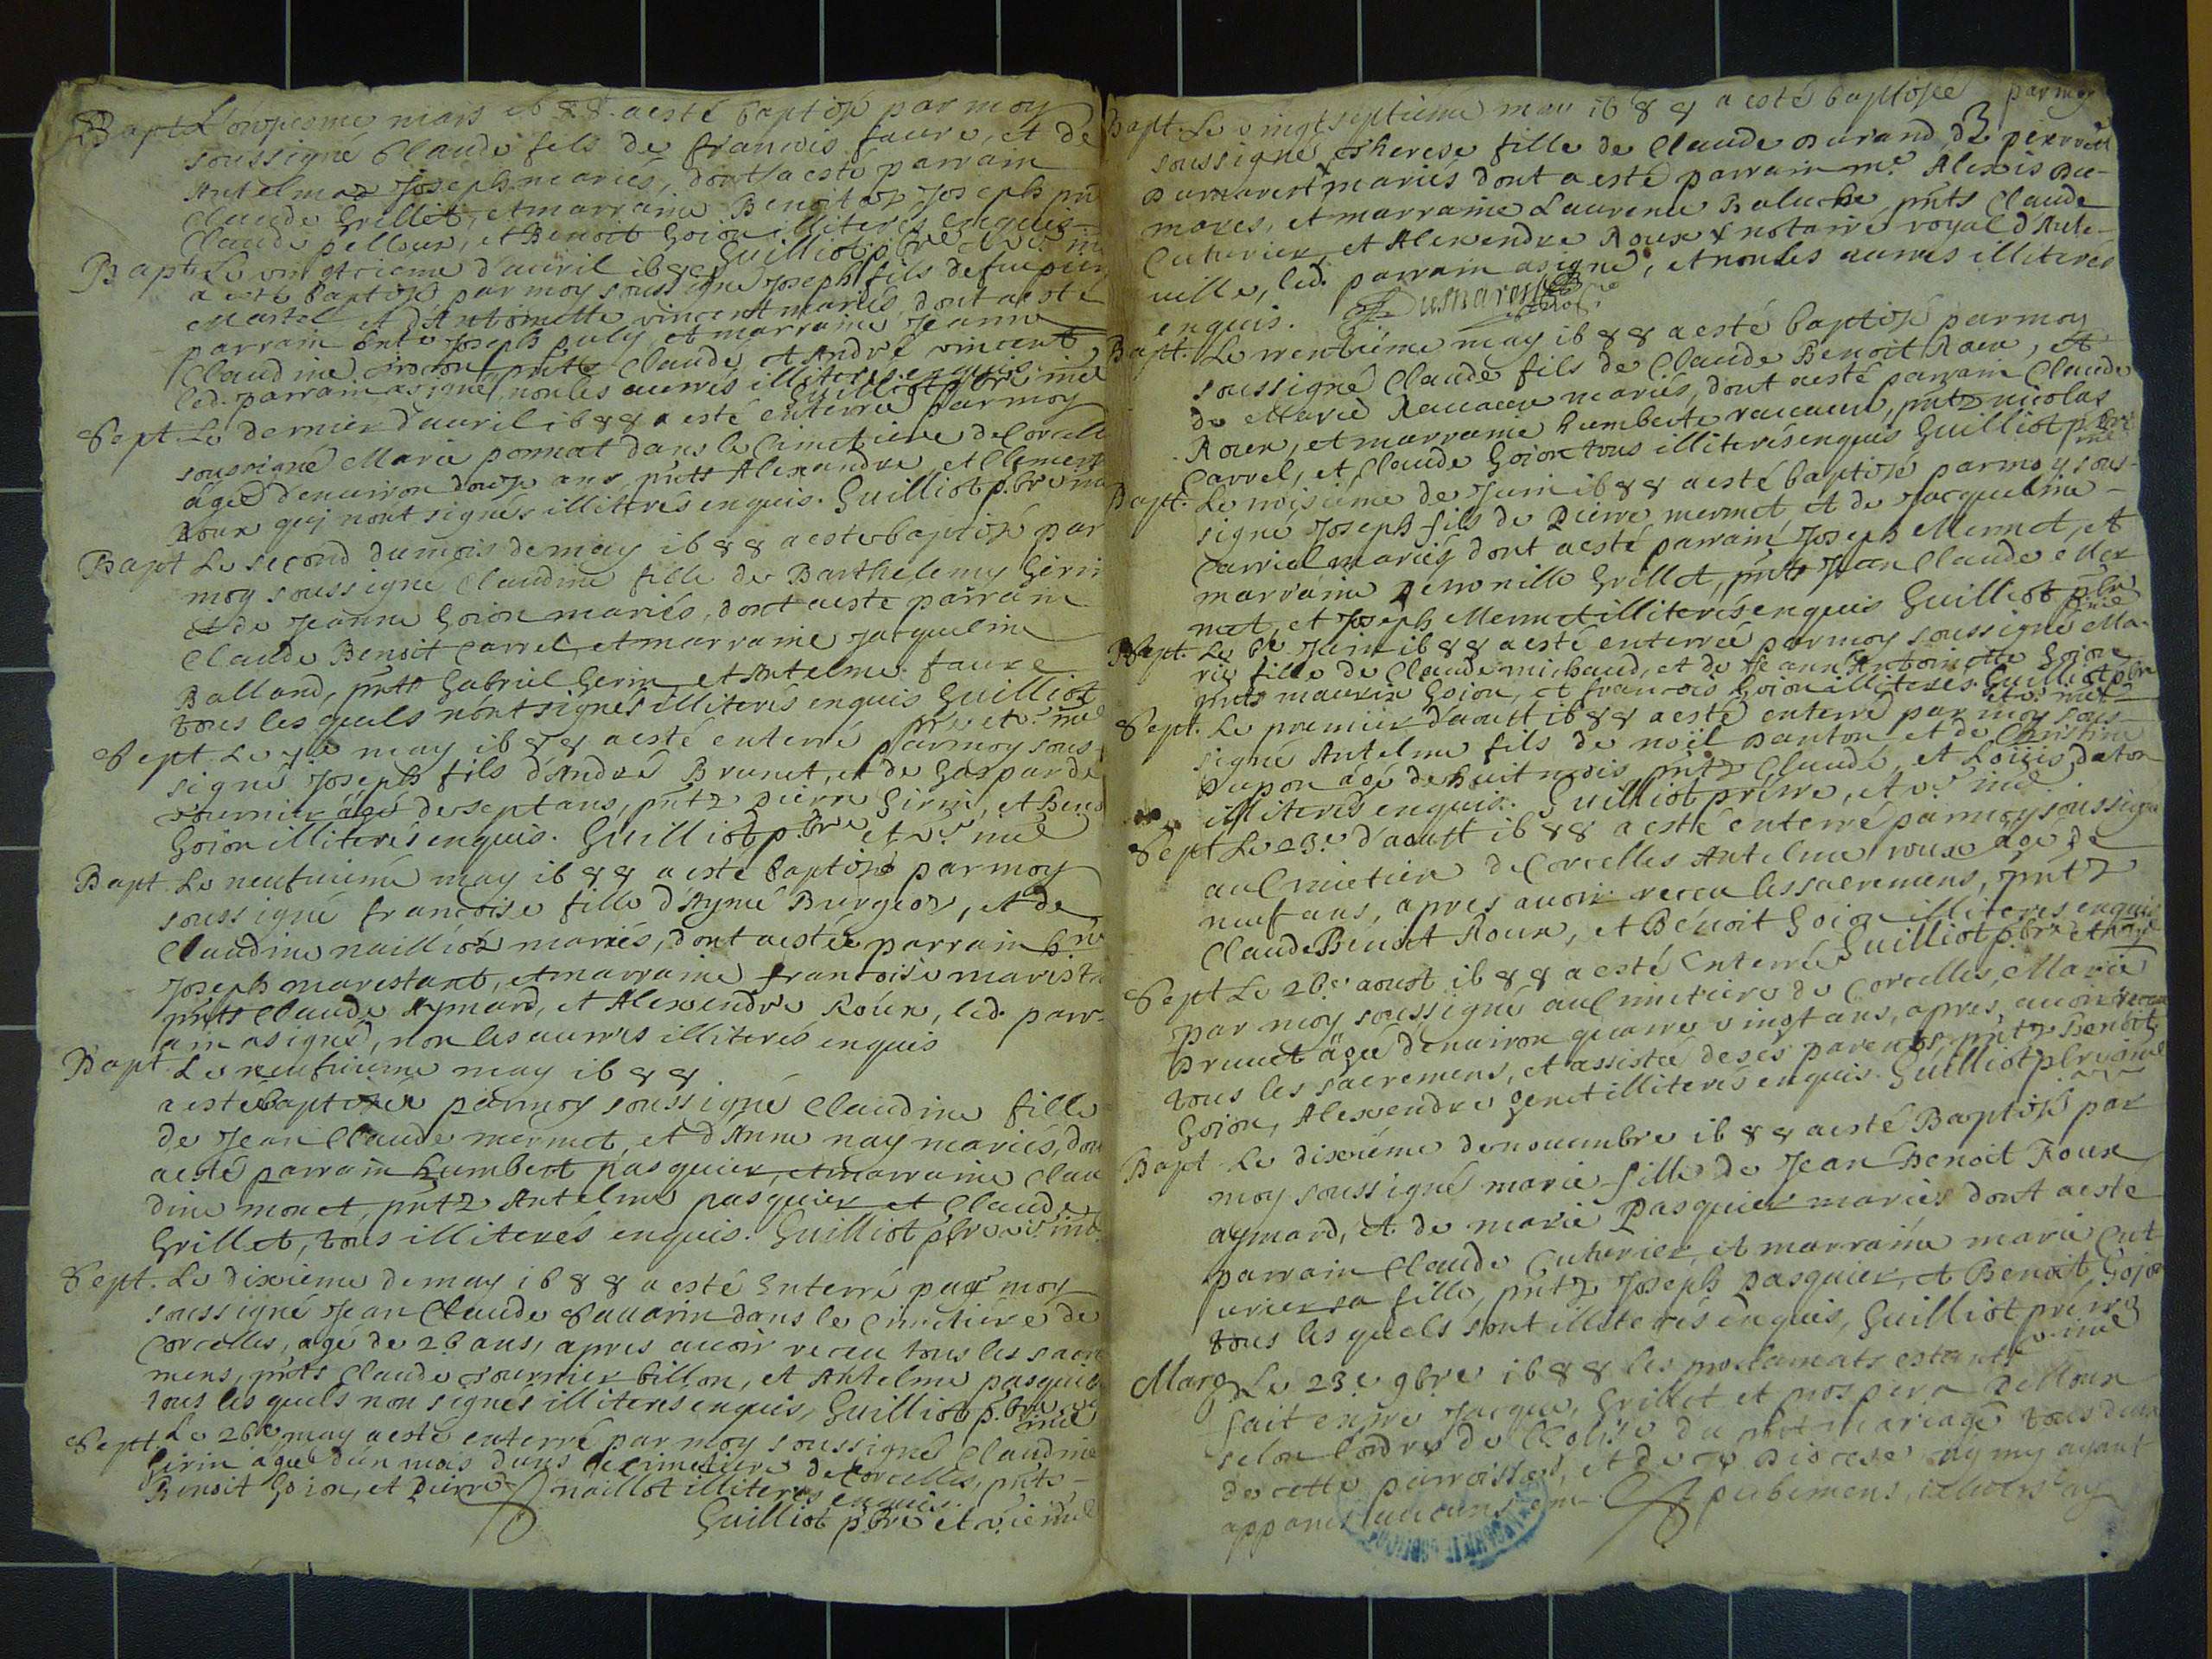 Bapt. L'onziesme mars 1688 a esté baptisé par moy
soussigné Claude fils de francois faure, et de
Antelmaz Joseph mariés, dont a esté parrain
Claude Grillet, et marraine Benoitaz Joseph pnts
Claude pelloux, et Benoit Goion illiterés enquis
Guilliot pbre et vic. ind
Bapt. Le d'auril 1688 Joseph fils de feu pier
a esté baptisé par moy soussigné
Martel et d'Antoinette vincent mariés, dont a esté
parrain Joseph puly et marraine Jeanne
Claudine pnts Claude et André vincent
led. parrain a signé, non les autres illiterés enquis
Guilliot pbre ind
Sept. Le dernier d'auril 1688 a esté enterrée par moy
soussigné Marie ponnat dans le Cimetiere de Corcelle
âgée d'enuiron douze ans pnts Alexandre, et Clement
Roux qui n'ont signés illiterés enquis. Guilliot p.bre ind
Bapt Le second du mois de may 1688 a esté baptisé par
moy soussigné Claudine fille de Barthelemy Girin
et de Jeanne Goion mariés, dont a esté parrain
Claude Benoit Carrel, et marraine Jacqueline
Balland, pnts Gabriel Gerin, et Antelme faure
tous lesquels n'ont signés illiterés enquis Guilliot
pbre et v. ind
Sept. Le 7e may 1688 a esté enterré par moy sous-
signé Joseph fils d'André Brunet, et de Gasparde
fournier âgé de sept ans, pntz Pierre Girin, et Beno
Goion illiterés enquis. Guilliot p.bre et vic. ind
Bapt Le neufuieme may 1688 a esté baptisé par moy
soussigné francoise fille d'Aymé Burgeoz, et de
Claudine nailliot mariés, dont a esté parrain
Joseph marestant, et marraine francoise marista
pnts Claude Aymard, et Alexendre Roux, led. parr-
ain a signé, non les autres illiterés enquis
Bapt Le neufuieme may 1688
a esté baptisée par moy soussigné Claudine fille
de Jean Claude mermet, et d'Anne nay mariés, dont
a esté parrain humbert pasquier, et marraine Clau
dine monet, pntz Antelme pasquier et Claude
Grillet, tous illiterés enquis. Guilliot pbre vic. ind.
Sept. Le dixieme de may 1688 a esté Enterré par moy
soussigné Jean Claude Sauarin dans le Cimetiere de
Corcelles, agé de 26 ans, apres auoir receu tous les sacre
mens, pnts Claude fournier billon, et Antelme pasquier
tous lesquels non signés illiterés enquis, Guilliot p.bre vic
ind
Sept. Le 26e may a esté enterré par moy soussigné Claudine
Girin agée d'un mois dans le cimetiere de Corcelles, pnts
Benoit Goion, et Pierre naillot illiterés enquis.
Guilliot p.bre et vic ind
Bapt. Le vingt septieme may 1688 a esté baptisée par moy
soussigné Therese fille de Claude Durand, et de pierrette
Dumarest mariés dont a esté parrain me. Alexis Du-
mares, et marraine Laurence Baluche pnts Claude
Cuturier, et Alexendre Roux notaire royal d'Aute-
uille, led. parrain a signé, et non les autres illiterés
enquis. Dumarest
Bapt. Le trentiéme may 1688 a esté baptisé par moy
soussigné Claude fils de Claude Benoit Roux, et
de Marie Raccacu mariés, dont a esté parrain Claude
Roux, et marraine humberte raccacu, pntz nicolas
Carrel, et Claude Goion tous illiterés enquis Guilliot p.bre
ind
Bapt. Le troisiéme de Juin 1688 a esté baptisé par moy sous-
signé Joseph fils de Pierre mermet, et de Jacqueline
Carriel mariés dont a esté parrain Joseph Mermet, et
marraine Peronille Grillet, pnts Jean Claude Mer
met, et Joseph Mermet illiterés enquis Guilliot pbre
ind
Sept. Le 6e Juin 1688 a esté enterrée par moy soussigné Ma-
rie fille de Claude michaud, et de Jeanne Antoinette Goion
pnts maurix Goion, et francois Goion illiterés. Guilliot pbr
et v. ind
Sept. Le premier d'aoust 1688 a esté enterré par moy sous-
signé Antelme fils de noël danton et de Christine
Dupon agé de huit mois pntz Claude, et Loüis daton
illiterés enquis. Guilliot prêtre, et vic ind
Sept Le 23e. d'aoust 1688 a esté enterré par moy soussigné
au Cimetiere de Corcelles Antelme roux agé de
neuf ans, apres auoir receu les sacremens, pntz
Claude Benoit Roux, et Bénoit Goion illiterés enquis
Guilliot p.bre et v. ind
Sept Le 26e. aoust 1688 a esté Enterrée
par moy soussigné au Cimetiere de Corcelles, Marie
Brunet âgée denuiron quatre vingt ans, apres auoir receu
tous les sacremens, et assistée de ses parents pntz Benoit
Goion, Alexendre Genet illiterés enquis. Guilliot pbre ind
Bapt Le dixiéme de nouembre 1688 a esté Baptisé par
moy soussigné marie fille de Jean Benoit Roux
aymard, et de marie Pasquier mariés dont a esté
parrain Claude Cuturier, et marraine marie Cut-
urier sa fille, pntz Joseph Pasquier, et Benoit Goion
tous lesquels sont illiterés enquis, Guilliot prêtre
v. ind
Marg Le 23e 9bre 1688 les proclamats estants
fait entre Jacque Grillet et prospera Pelloux
selon l'ordre de l'Eglise du mariage tous deux
de cette parroisse, et de ce Diocese ny my ayant
apparus aucuns em- pechemens,